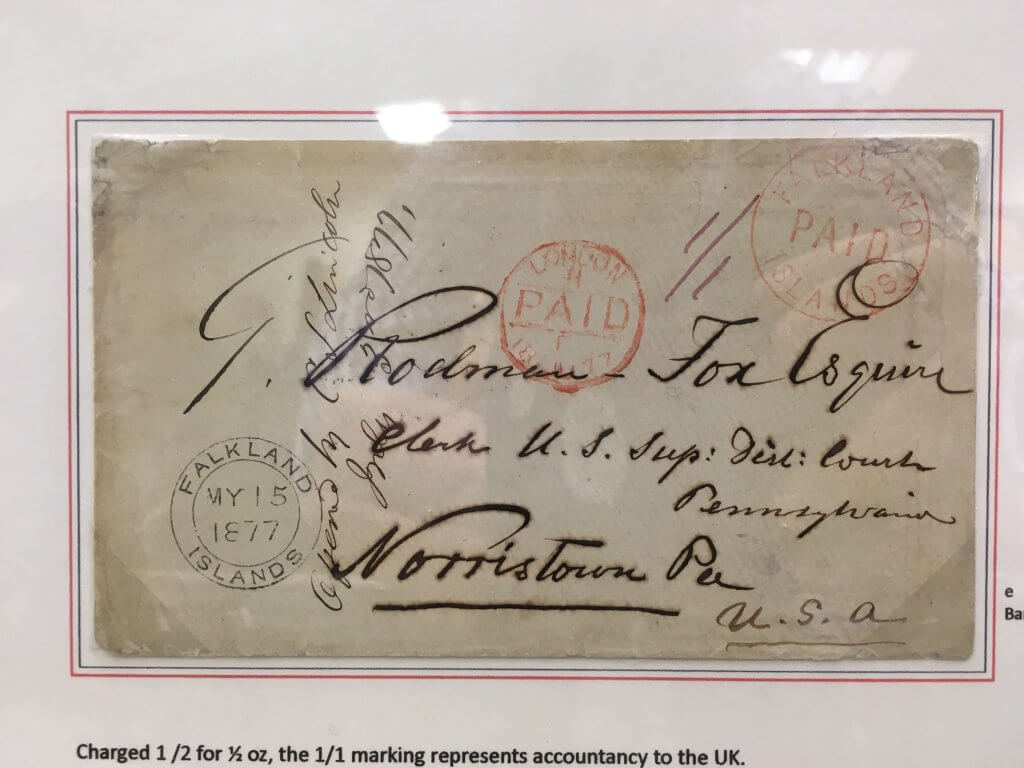 FALKLAND
PAID
ISLANDS
1/1
LONDON
PAID
G. Rodman Fox Esquire
Clerk U.S. Sup: Dist: Court
Pennsylvania
Norristown Pa
U.S.A
FALKLAND
MY 15
1877
ISLANDS
Opened by
Lincoln
e
Bar
Charged 1 /2 for ½ oz, the 1/1 marking represents accountancy to the UK.